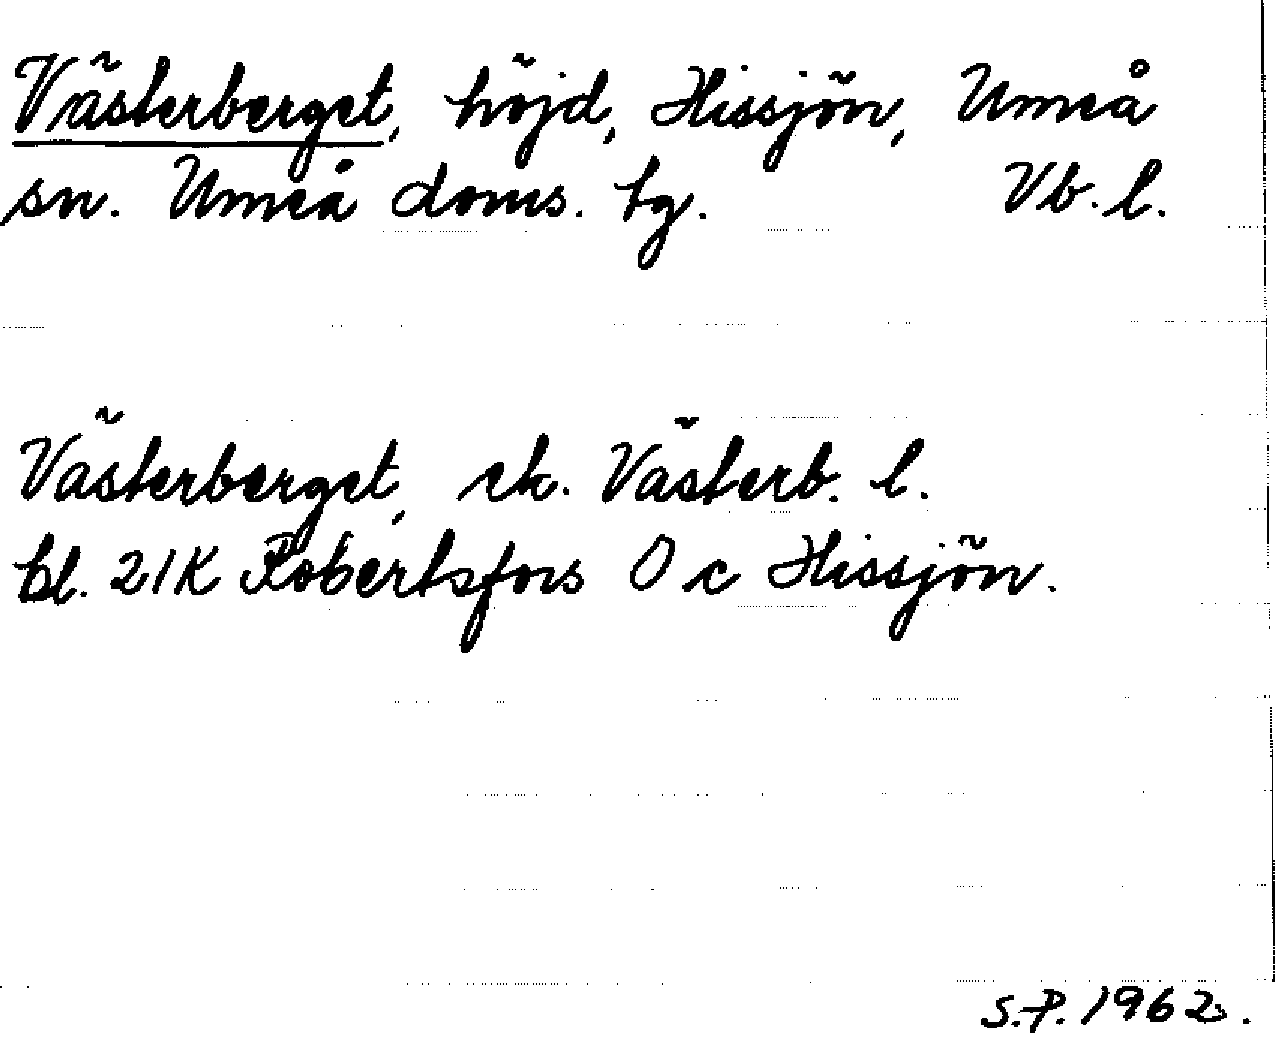 Västerberget, höjd, Hissjön, Umeå
sn. Umeå doms. tg. Vb. l.
Västerberget, ek. Västerb. l.
bl. 21K Robertsfors 0 c Hissjön.
S.P. 1962.